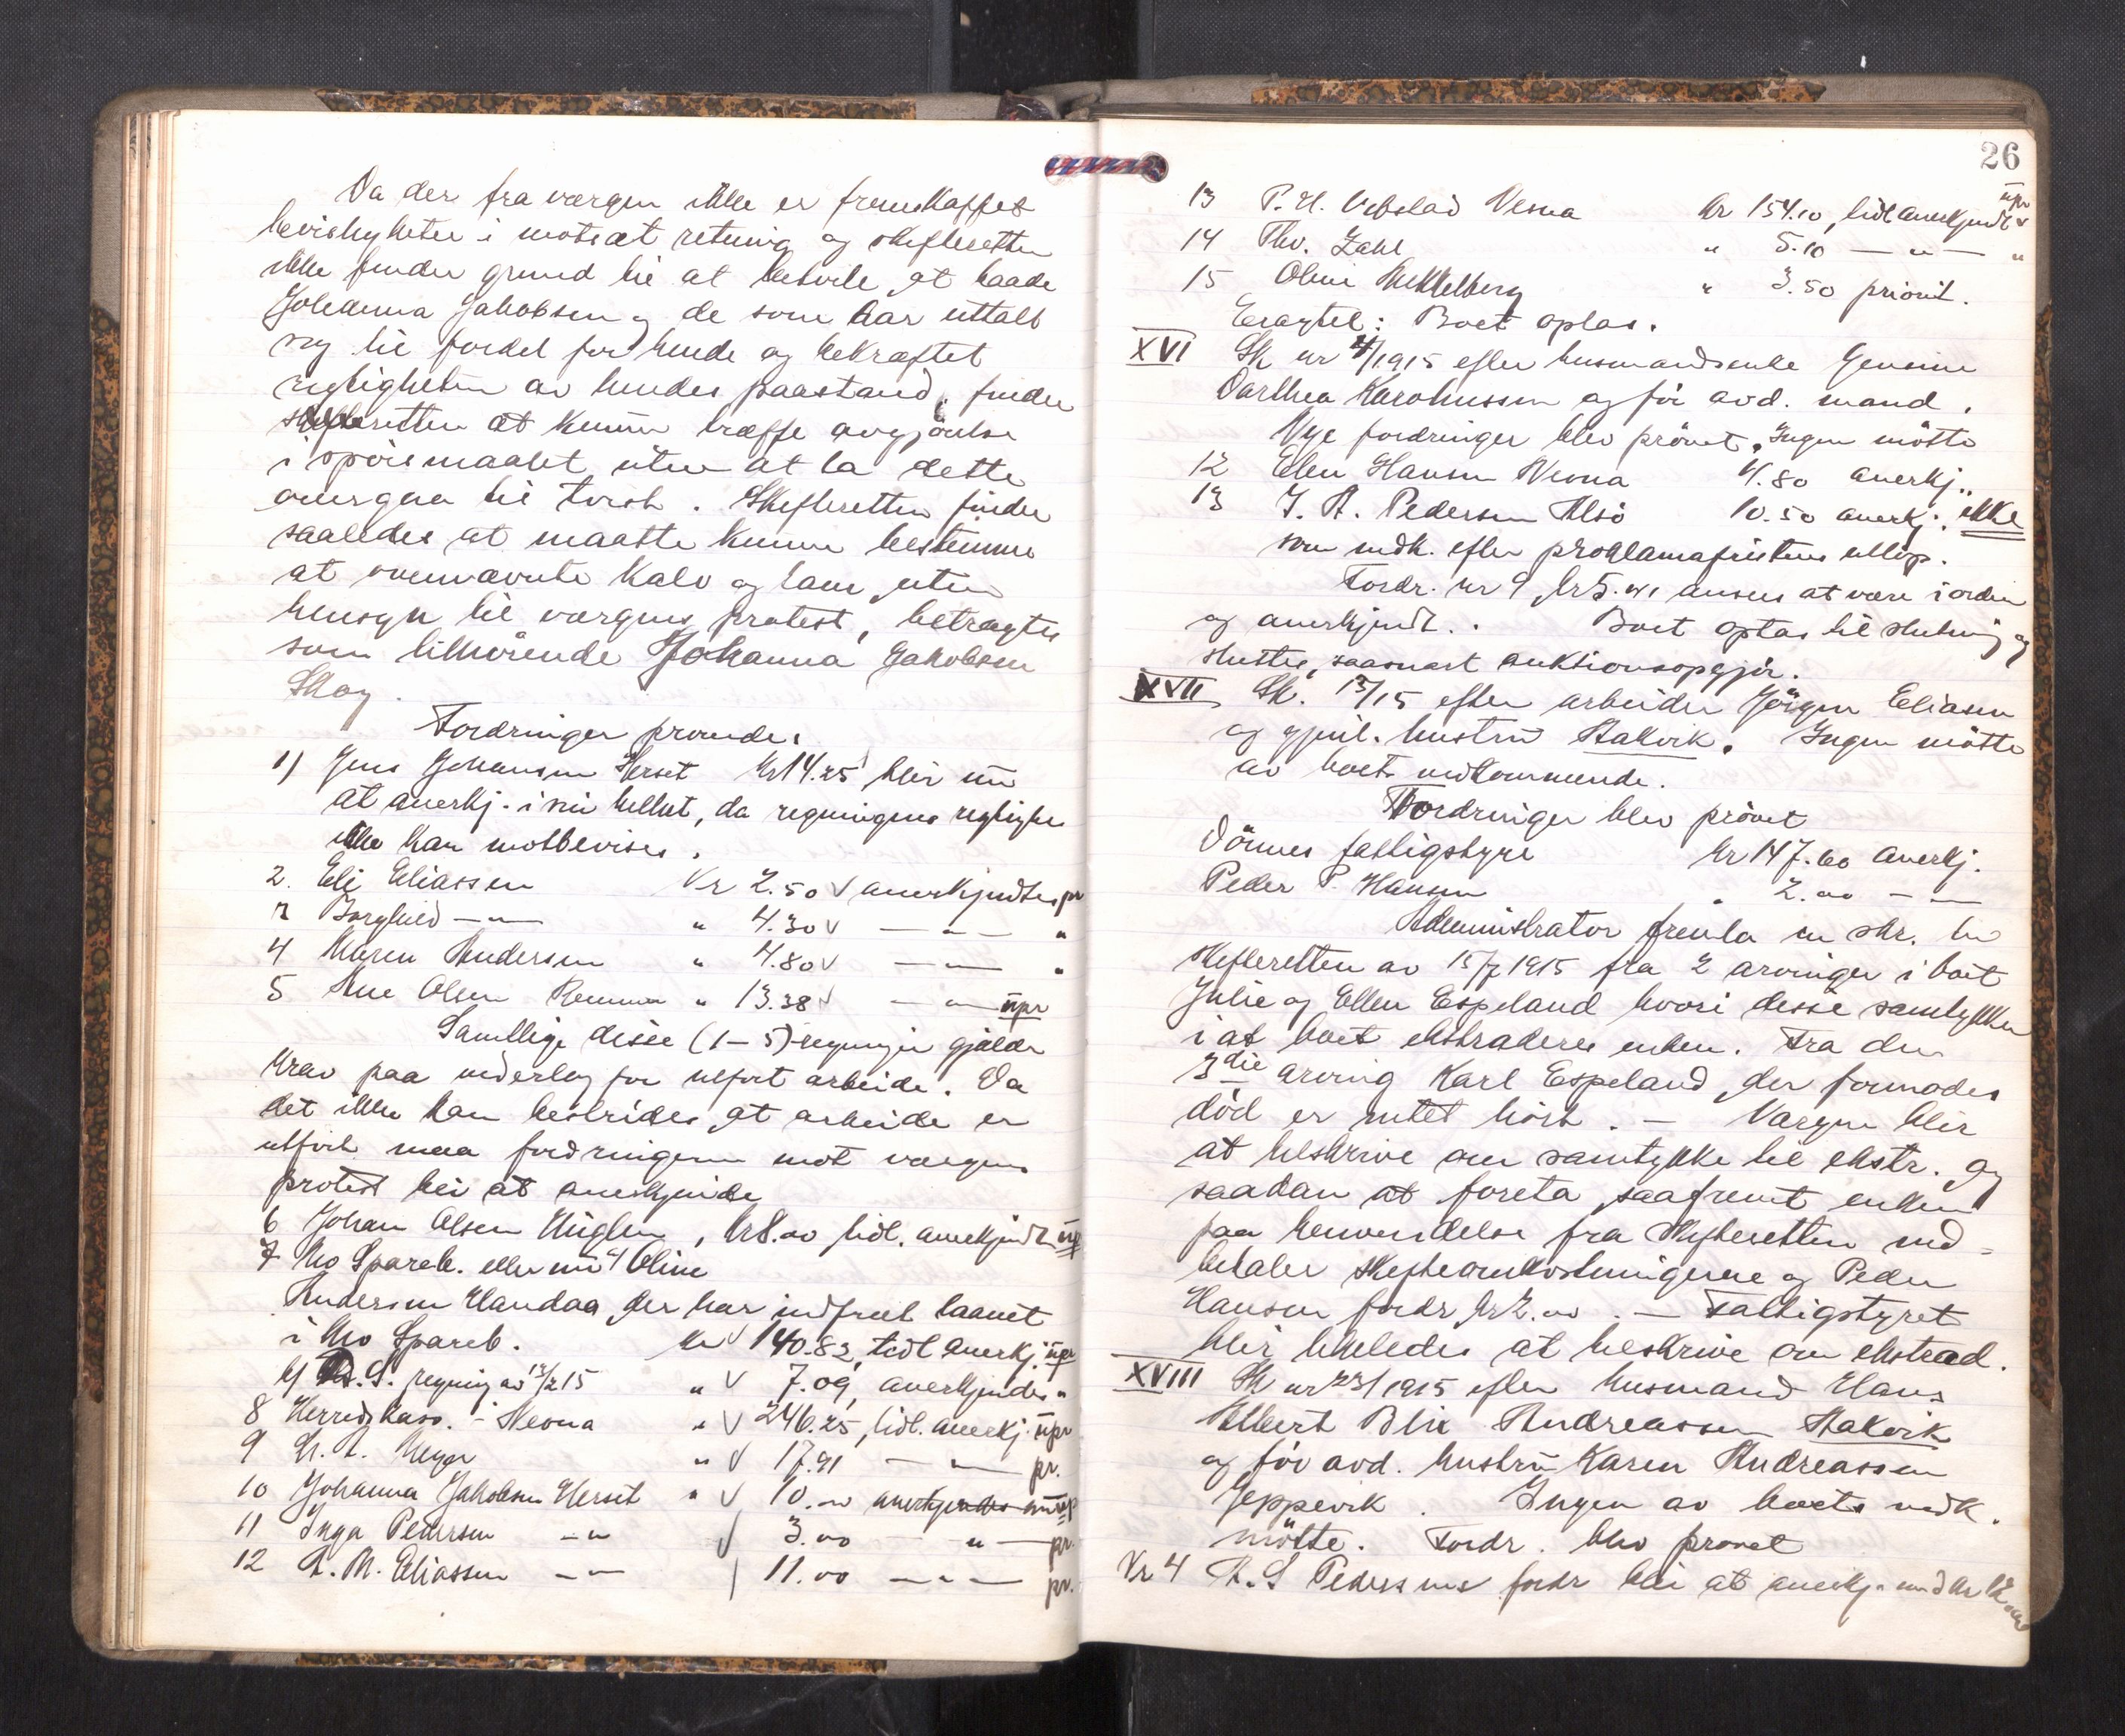 Da der fra værgen ikke er fremskaffet
bevisligheter i motsat retning og skifteretten
ikke finder grund til at betvile at baade
Johanna Jakobsen og de som har uttalt
sig til fordel for hende og bekræftet
rigtigheten av hendes paastand, finder
skifteretten at kunne træffe avgjørelse
i spörsmaalet uten at la dette
overgaa til tvist. Skifteretten finder
saaledes at maatte kunne bestemme
at ovennævnte kalv og lam, uten
hensyn til værgens protest, betragtes
som tilhörende Johanna Jakobsen
Skog.
Fordringer prövedes
1) Jens Johansen Herset Kr 14.25 blir
at anerkj. i sin helhet, da regningens rigtighet
ikke kan motbevises.
2. Eli Eliassen Kr 2.50 v anerkjendtes pr
3 Borghild —"— " 4.30 v —"— "
4 Maren Andersen " 4.80 v —"— "
5 Ane Olsen " 13.38 v —"— upr
Samtlige disse (1-5) regninger gjælder
krav paa vederlag for utfört arbeide. Da
det ikke kan bestrides at arbeide er
utfört maa fordringerne mot værgens
protest bli at anerkjende
6 Johan Olsen, kr 8.00 tidl. anerkjendt upr
7 Mo Spareb. eller nu Oline
Andersen Handaa, der har indfriet laanet
i Mo Spareb. kr v 140.82, tidl anerkj. upr
S. regning av 13/2 15 " v 7.09, anerkjendes "
8 Herredskass. i Nesna " v 246.25, tidl. anerkj. upr
9 Meyer " v 17.91 —"— pr.
10 Johanna Jakobsen Herset " v 10.00 anerkjendes
11 Inga Pedersen —"— v 3.00 —"— pr.
12 A. M. Eliassen —"— 11.00 —"— pr.
26
13 P. H. Nesna kr 154.10, tidl anerkjendt upr
14 Thv. Zahl " 5.10 —"— "
15 Oline " 3.50 priorit.
Eragtet: Boet optas.
XVI Sk nr 4/1915 efter husmandsenke Gensine
Dorthea Karolinussen og för avd. mand.
Nye fordringer blev prövet. Ingen mötte
12 Elen Hansen Nesna 4.80 anerkj.
13 J. A. Pedersen Alsö 10.50 anerkj. ikke
som indk. efter proklamafristens utlöp.
Fordr. nr 9, kr 5. anses at være i orden
og anerkjendt. Boet optas til slutning og
sluttes, saasnart auktionsopgjör.
XVII Sk. 13/15 efter arbeider Jörgen Eliasen
og gjenl. hustru Aakvik. Ingen mötte
av boets vedkommende.
Fordringer blev prövet
Dönnes fattigstyre kr 147.60 anerkj.
Peder P. Hansen " 2.00 —"—
Administrator fremla en skr. til
skifteretten av 15/7 1915 fra 2 arvinger i boet
Julie og Ellen Espeland hvori disse samtykker
i at boet ekstraderes enken. Fra den
3die arving Karl Espeland, der formodes
död er intet hört. — Værgen blir
at tilskrive om samtykke til ekstr. og
saadan at foreta, saafremt enken
paa henvendelse fra skifteretten ind-
betaler skifteomkostningerne og Peder
Hansen fordr. kr 2.00. — Fattigstyret
blir likeledes at tilskrive om ekstrad.
XVIII Sk nr 23/1915 efter husmand Hans
Albert Blix Andreassen Aakvik
og för avd. hustru Karen Andreassen
Jeppevik. Ingen av boets vedk.
mötte. Fordr. blev prövet
Nr 4 A. S Pedersens fordr blir at anerkj. med kr